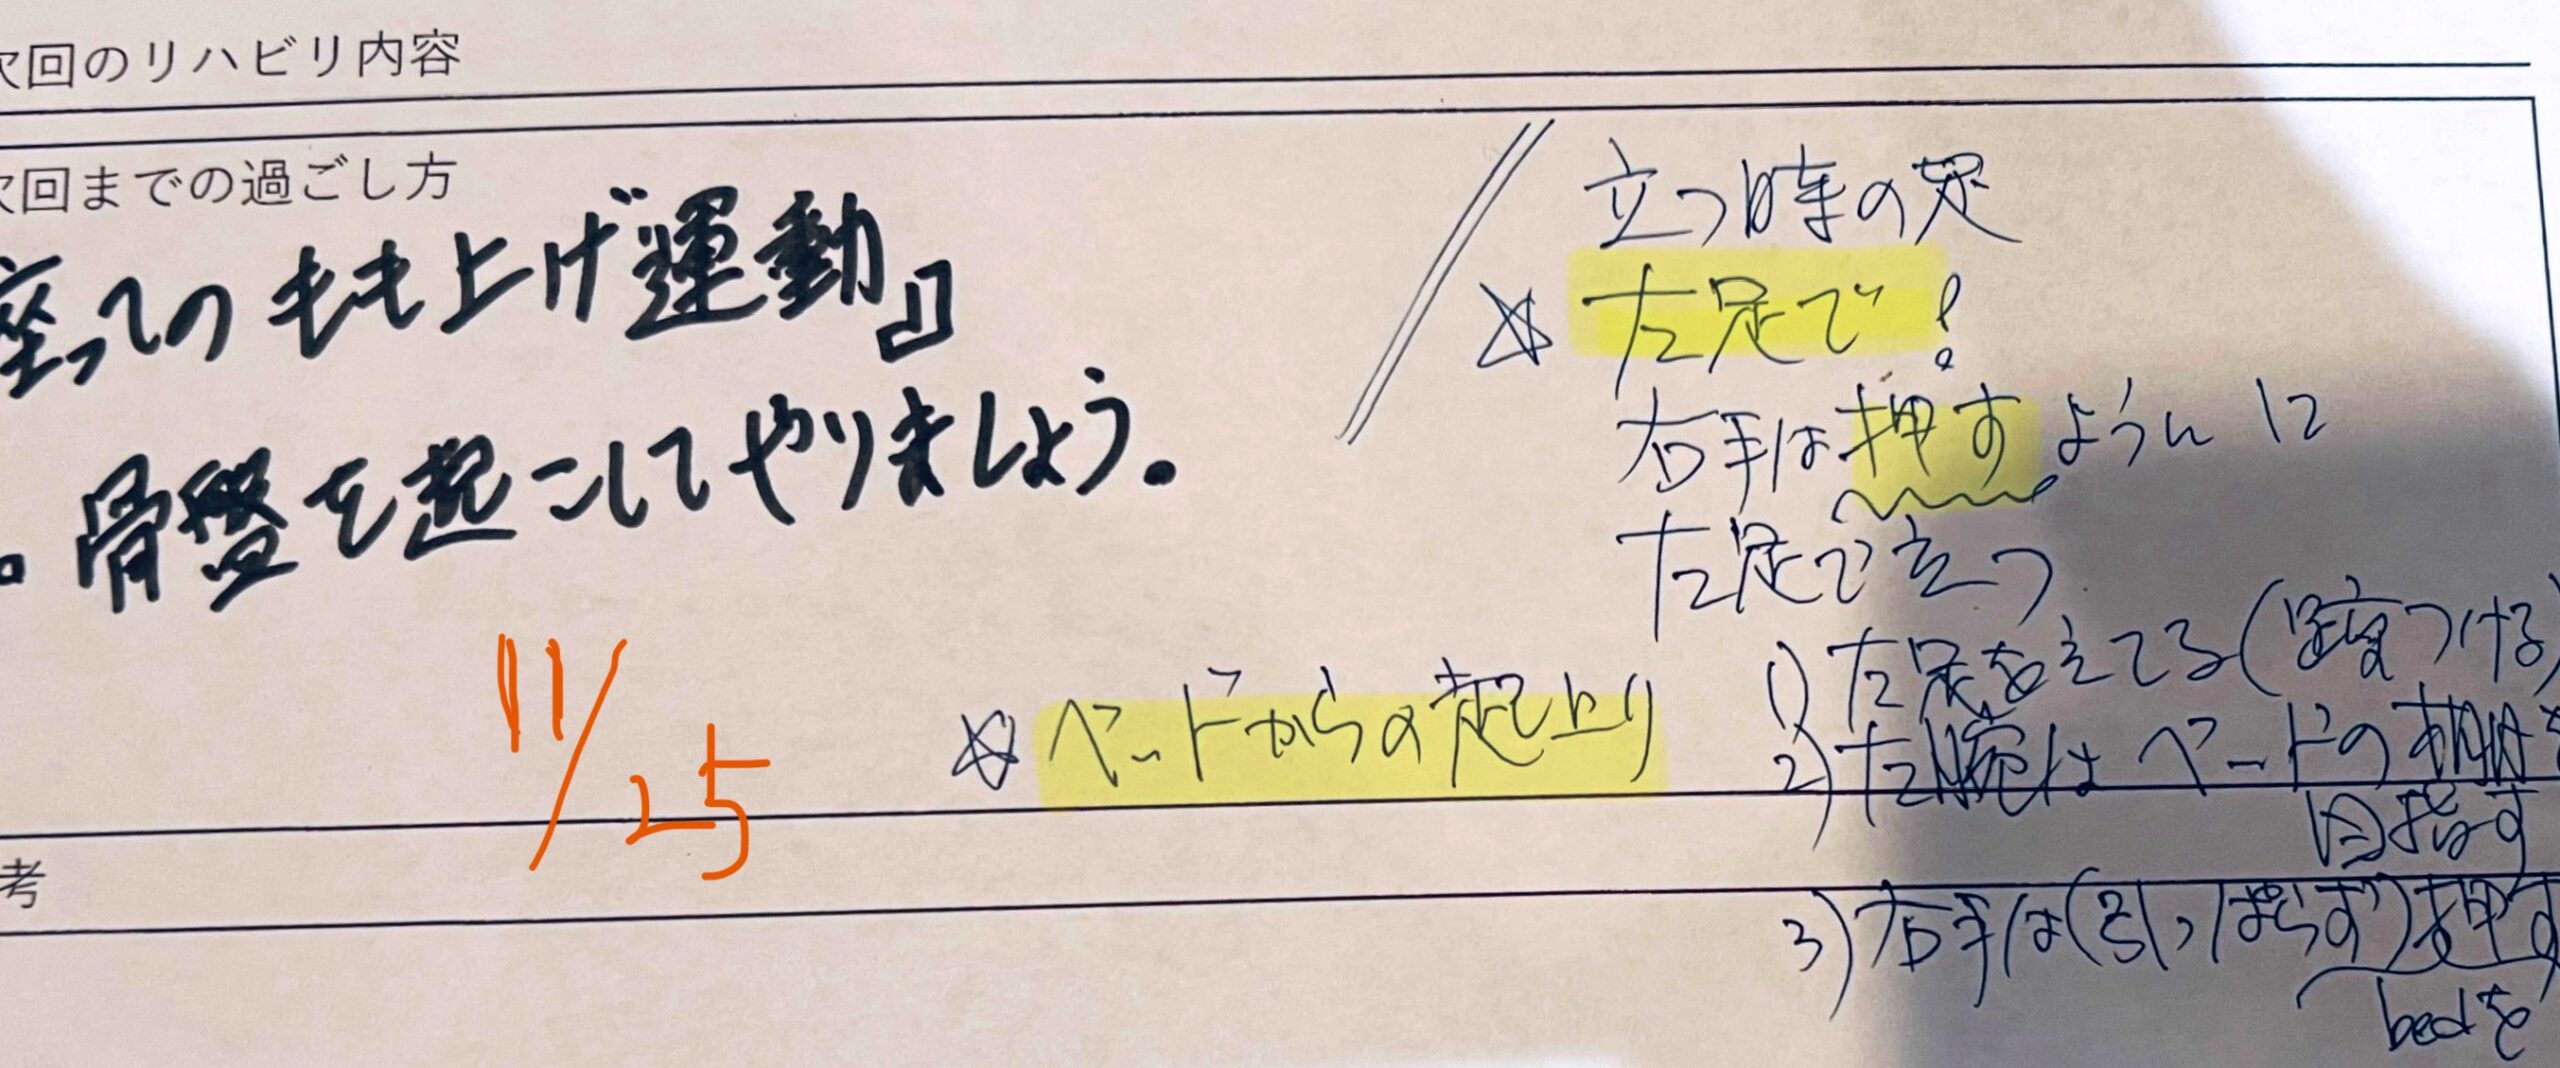 次回のリハビリ内容
次回までの過ごし方
座ってのもも上げ運動』
。骨盤を起こしてやりましょう。
11/25
考
立つ時の足
☆左足で!
右手は押すように
左足で立つ
☆ベッドからの起上り
1)左足を立てる(踵つける)
2)左腕はベードの柵を
目指す
3)右手は(引っぱらず)押す
bedを